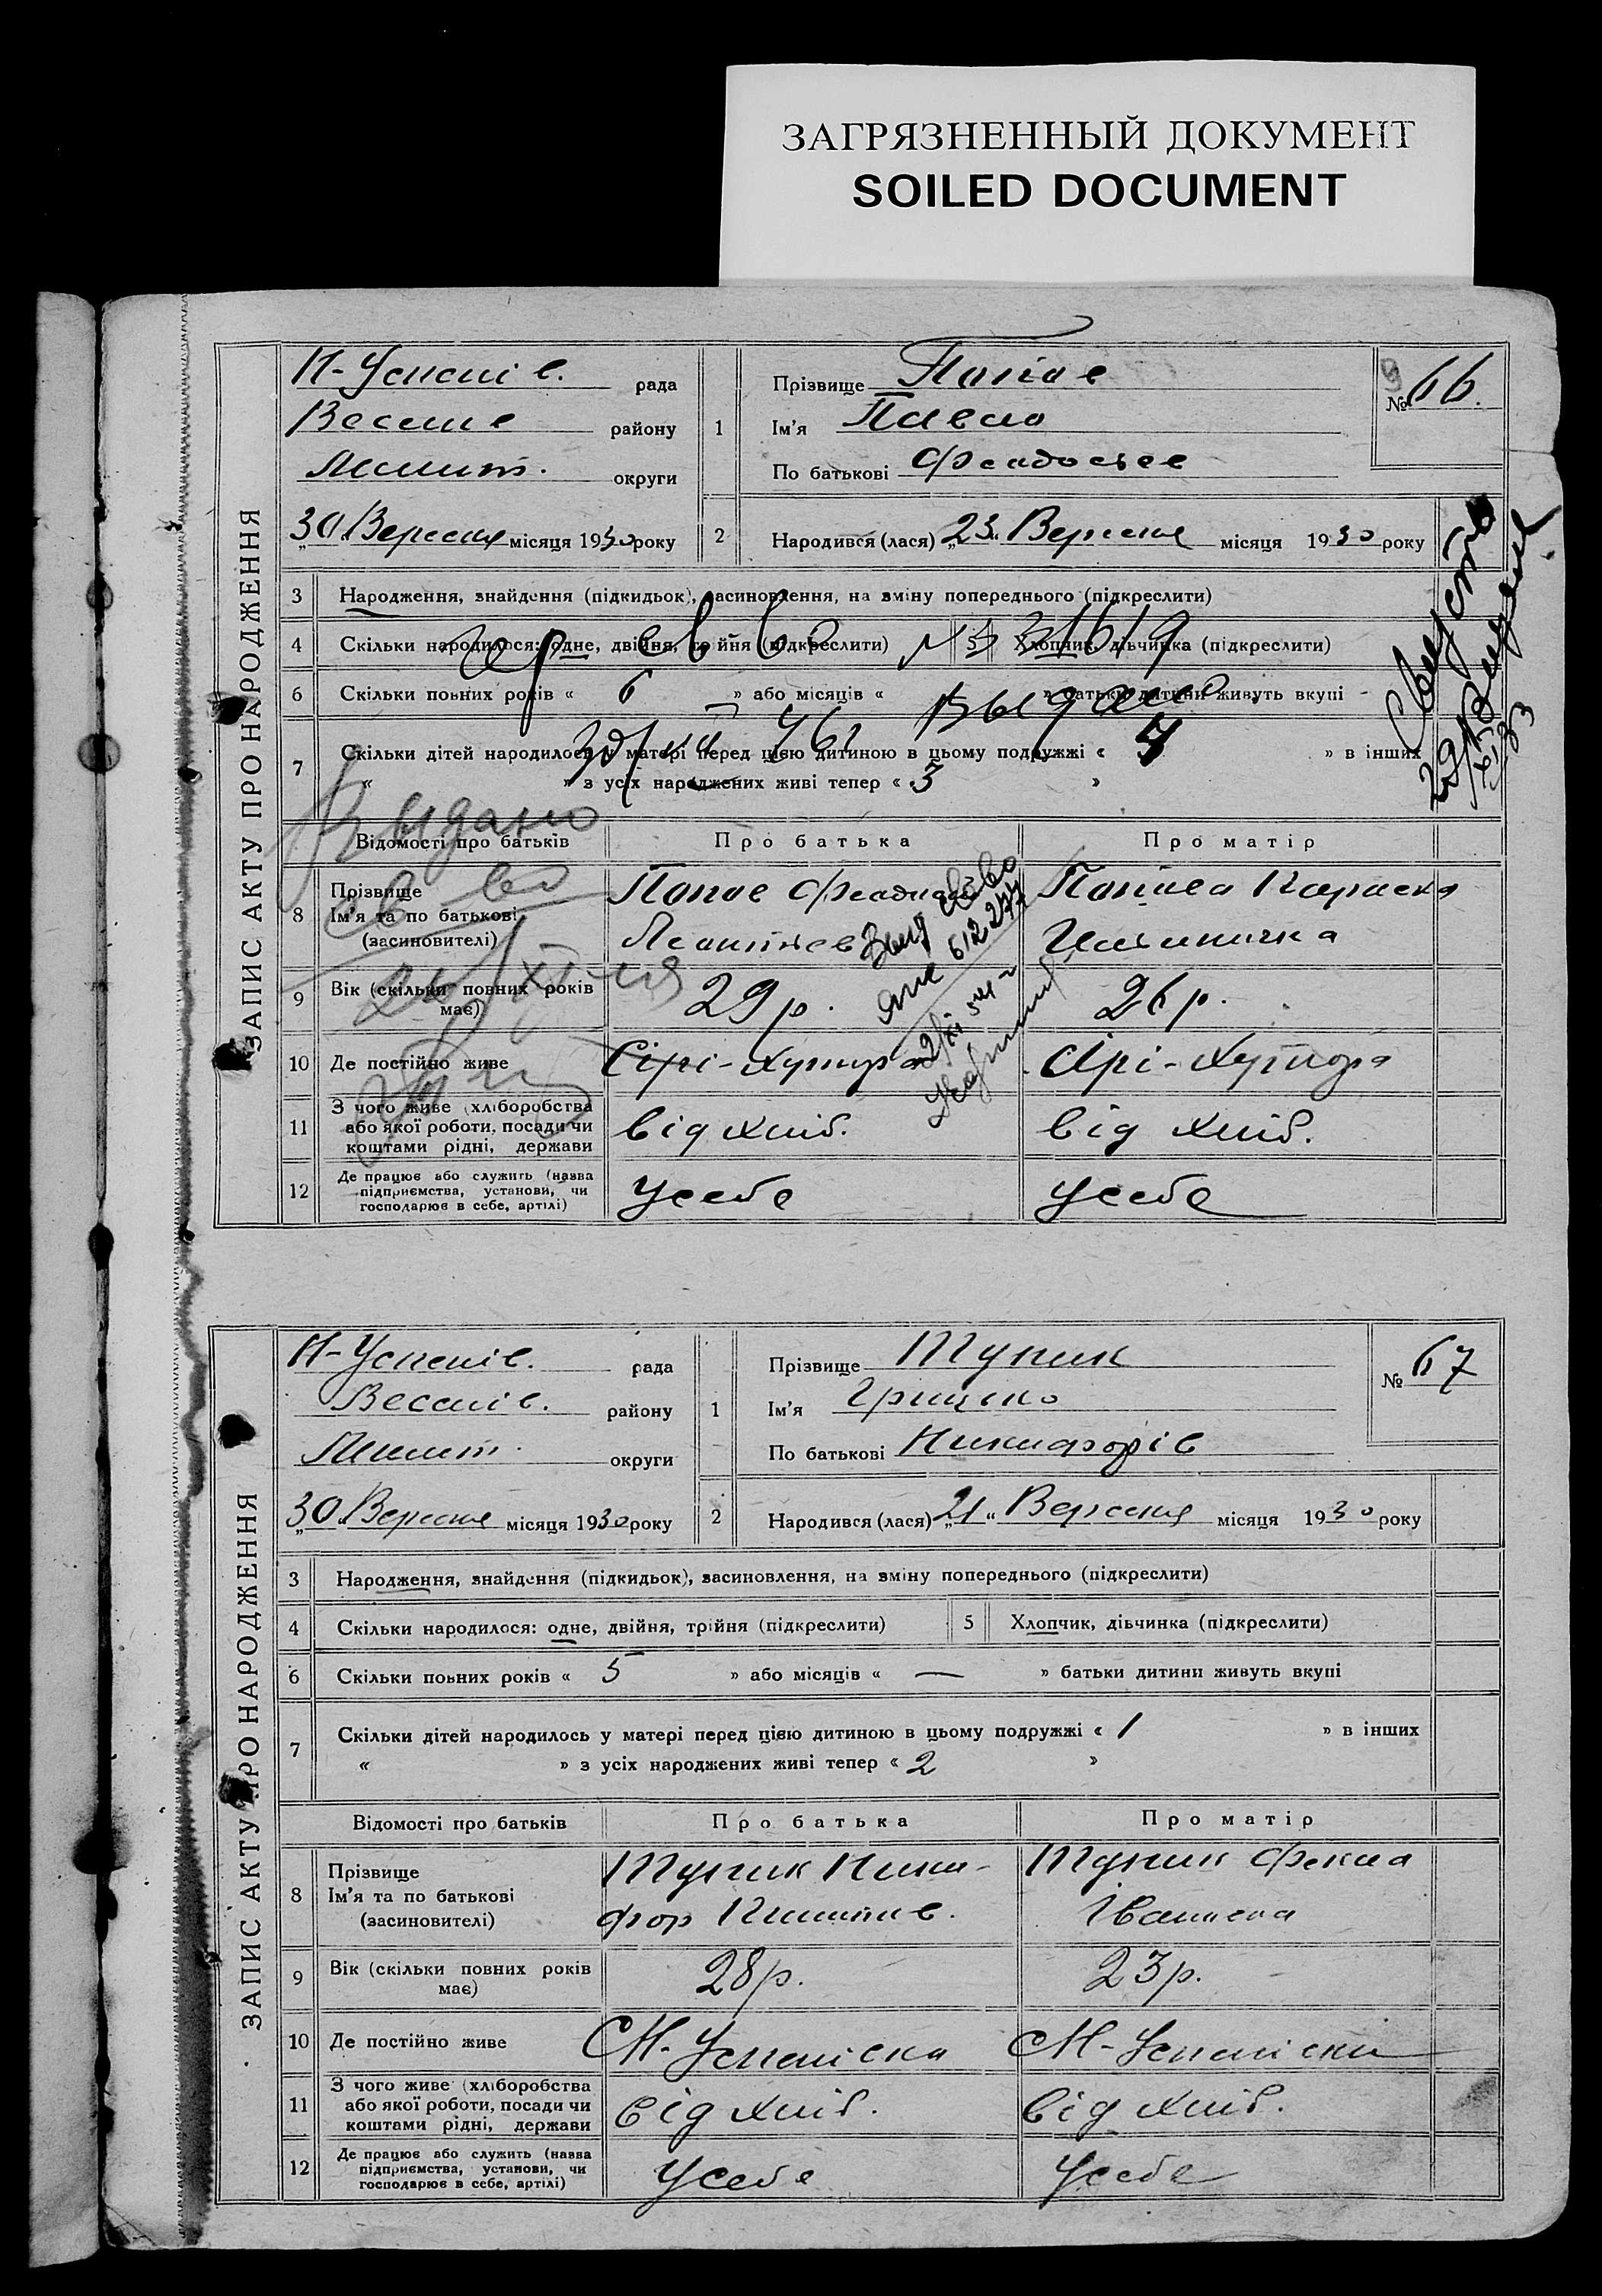 ЗАГРЯЗНЕННЫЙ ДОКУМЕНТ
SOILED DOCUMENT
ЗАПИС АКТУ ПРО НАРОДЖЕННЯ
Н-Успенів. рада
Веселів району
Меліт. округи
„30 Вересня місяця 1930 року
1
Прізвище Попов
Ім'я Павло
По батькові Феадосієв
№ 66.
2 Народився (лася) „23“ Вересня місяця 1930 року
3 Народження, знайдення (підкидьок), засиновлення, на зміну попереднього (підкреслити)
4 Скільки народилося: одне, двійня, трійня (підкреслити) 5 Хлопчик, дівчинка (підкреслити)
6 Скільки повних років « 6 » або місяців « » батьки дитини живуть вкупі
7 Скільки дітей народилось у матері перед цією дитиною в цьому подружжі « » в інших
« » з усіх народжених живі тепер « 3 »
Видано
Відомості про батьків Про батька Про матір
8 Прізвище
Ім'я та по батькові
(засиновителі)
Попов
Попова
9 Вік (скільки повних років має) 29 р. 26 р.
10 Де постійно живе Сірі-Хутора Сірі-Хутора
11 З чого живе (хліборобства або якої роботи, посади чи коштами рідні, держави від хліб. від хліб.
12 Де працює або служить (назва підприємства, установи, чи господарює в себе, артілі) У себе У себе
ЗАПИС АКТУ ПРО НАРОДЖЕННЯ
Н-Успенів. рада
Веселів. району
Меліт. округи
„30 Вересня місяця 1930 року
1
Прізвище Тупик
Ім'я Грицько
По батькові Никифорів
№ 67
2 Народився (лася) „21“ Вересня місяця 1930 року
3 Народження, знайдення (підкидьок), засиновлення, на зміну попереднього (підкреслити)
4 Скільки народилося: одне, двійня, трійня (підкреслити) 5 Хлопчик, дівчинка (підкреслити)
6 Скільки повних років « 5 » або місяців « — » батьки дитини живуть вкупі
7 Скільки дітей народилось у матері перед цією дитиною в цьому подружжі « 1 » в інших
« » з усіх народжених живі тепер « 2 »
Відомості про батьків Про батька Про матір
8 Прізвище
Ім'я та по батькові
(засиновителі)
Тупик Ники-
фор
Тупик Фекла
Іванівна
9 Вік (скільки повних років має) 28 р. 23 р.
10 Де постійно живе С Н-Успенівка С Н-Успенівка
11 З чого живе (хліборобства або якої роботи, посади чи коштами рідні, держави від хліб. від хліб.
12 Де працює або служить (назва підприємства, установи, чи господарює в себе, артілі) У себе У себе